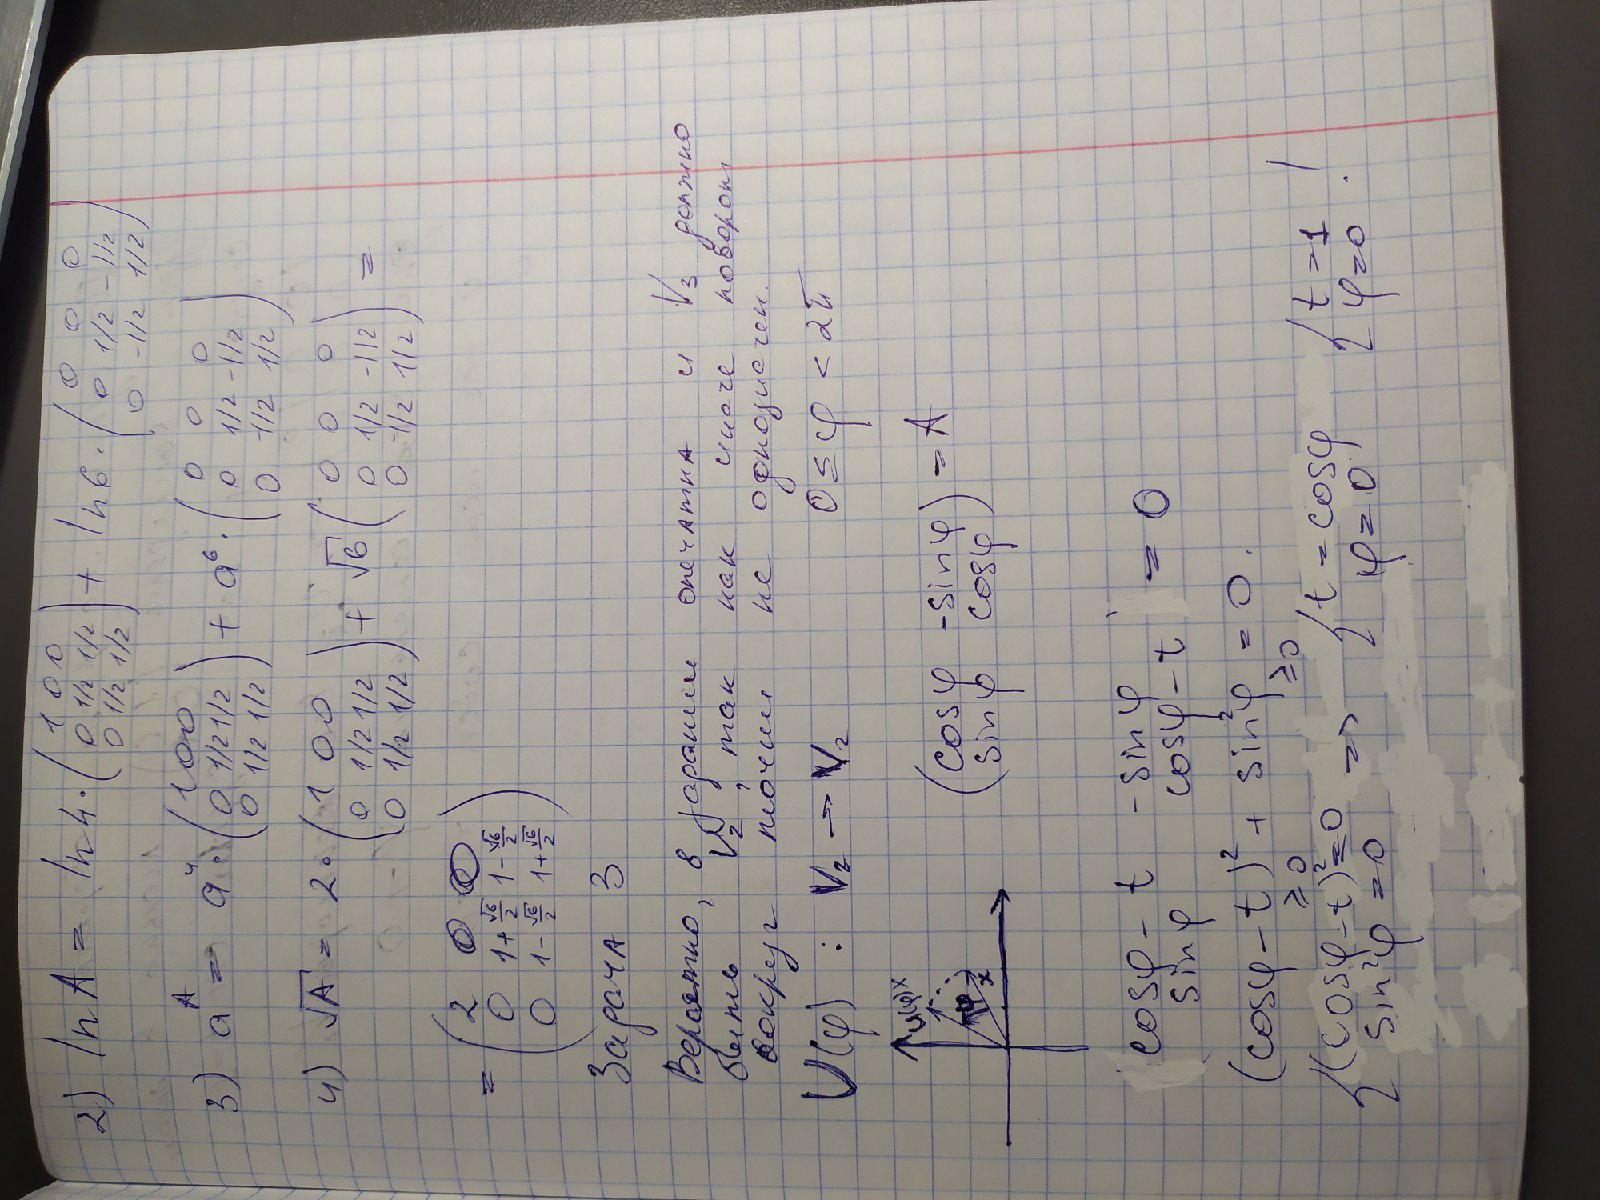 2) ln A = ln 4 · (1 0 0; 0 1/2 1/2; 0 1/2 1/2) + ln 6 · (0 0 0; 0 1/2 -1/2; 0 -1/2 1/2)
3) a^A = a^4 · (1 0 0; 0 1/2 1/2; 0 1/2 1/2) + a^6 · (0 0 0; 0 1/2 -1/2; 0 -1/2 1/2)
4) √A = 2 · (1 0 0; 0 1/2 1/2; 0 1/2 1/2) + √6 (0 0 0; 0 1/2 -1/2; 0 -1/2 1/2) =
= (2 0 0; 0 1+√6/2 1-√6/2; 0 1-√6/2 1+√6/2)
Задача 3
Вероятно, в задании опечатка и V₃ должно
быть V₂, так как иначе поворот
вокруг точки не однозначен.
U(φ) : V₂ → V₂ 0 ≤ φ < 2π
U(φ)x
φ
x
(cosφ -sinφ; sinφ cosφ) = A
cosφ - t -sinφ
sinφ cosφ - t
= 0
(cosφ - t)² + sin²φ = 0.
≥0 ≥0
{(cosφ - t)² = 0; sin²φ = 0 => {t = cosφ; φ = 0 {t = 1; φ = 0 !